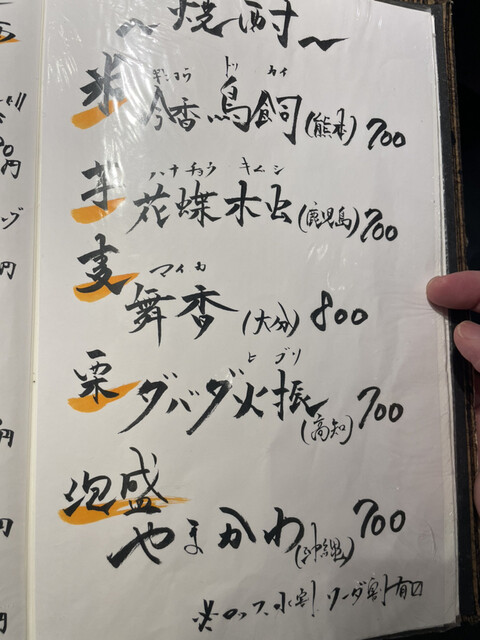 ～焼酎～
米
ギンコウ トリ カイ
吟香鳥飼(熊本) 700
芋
ハナ チョウ キムシ
花蝶木虫(鹿児島) 700
麦
マイカ
舞香(大分) 800
栗
ヒ ブリ
ダバダ火振(高知) 700
泡盛
やまかわ(沖縄) 700
※ロック、水割、ソーダ割有
円
円
円
円